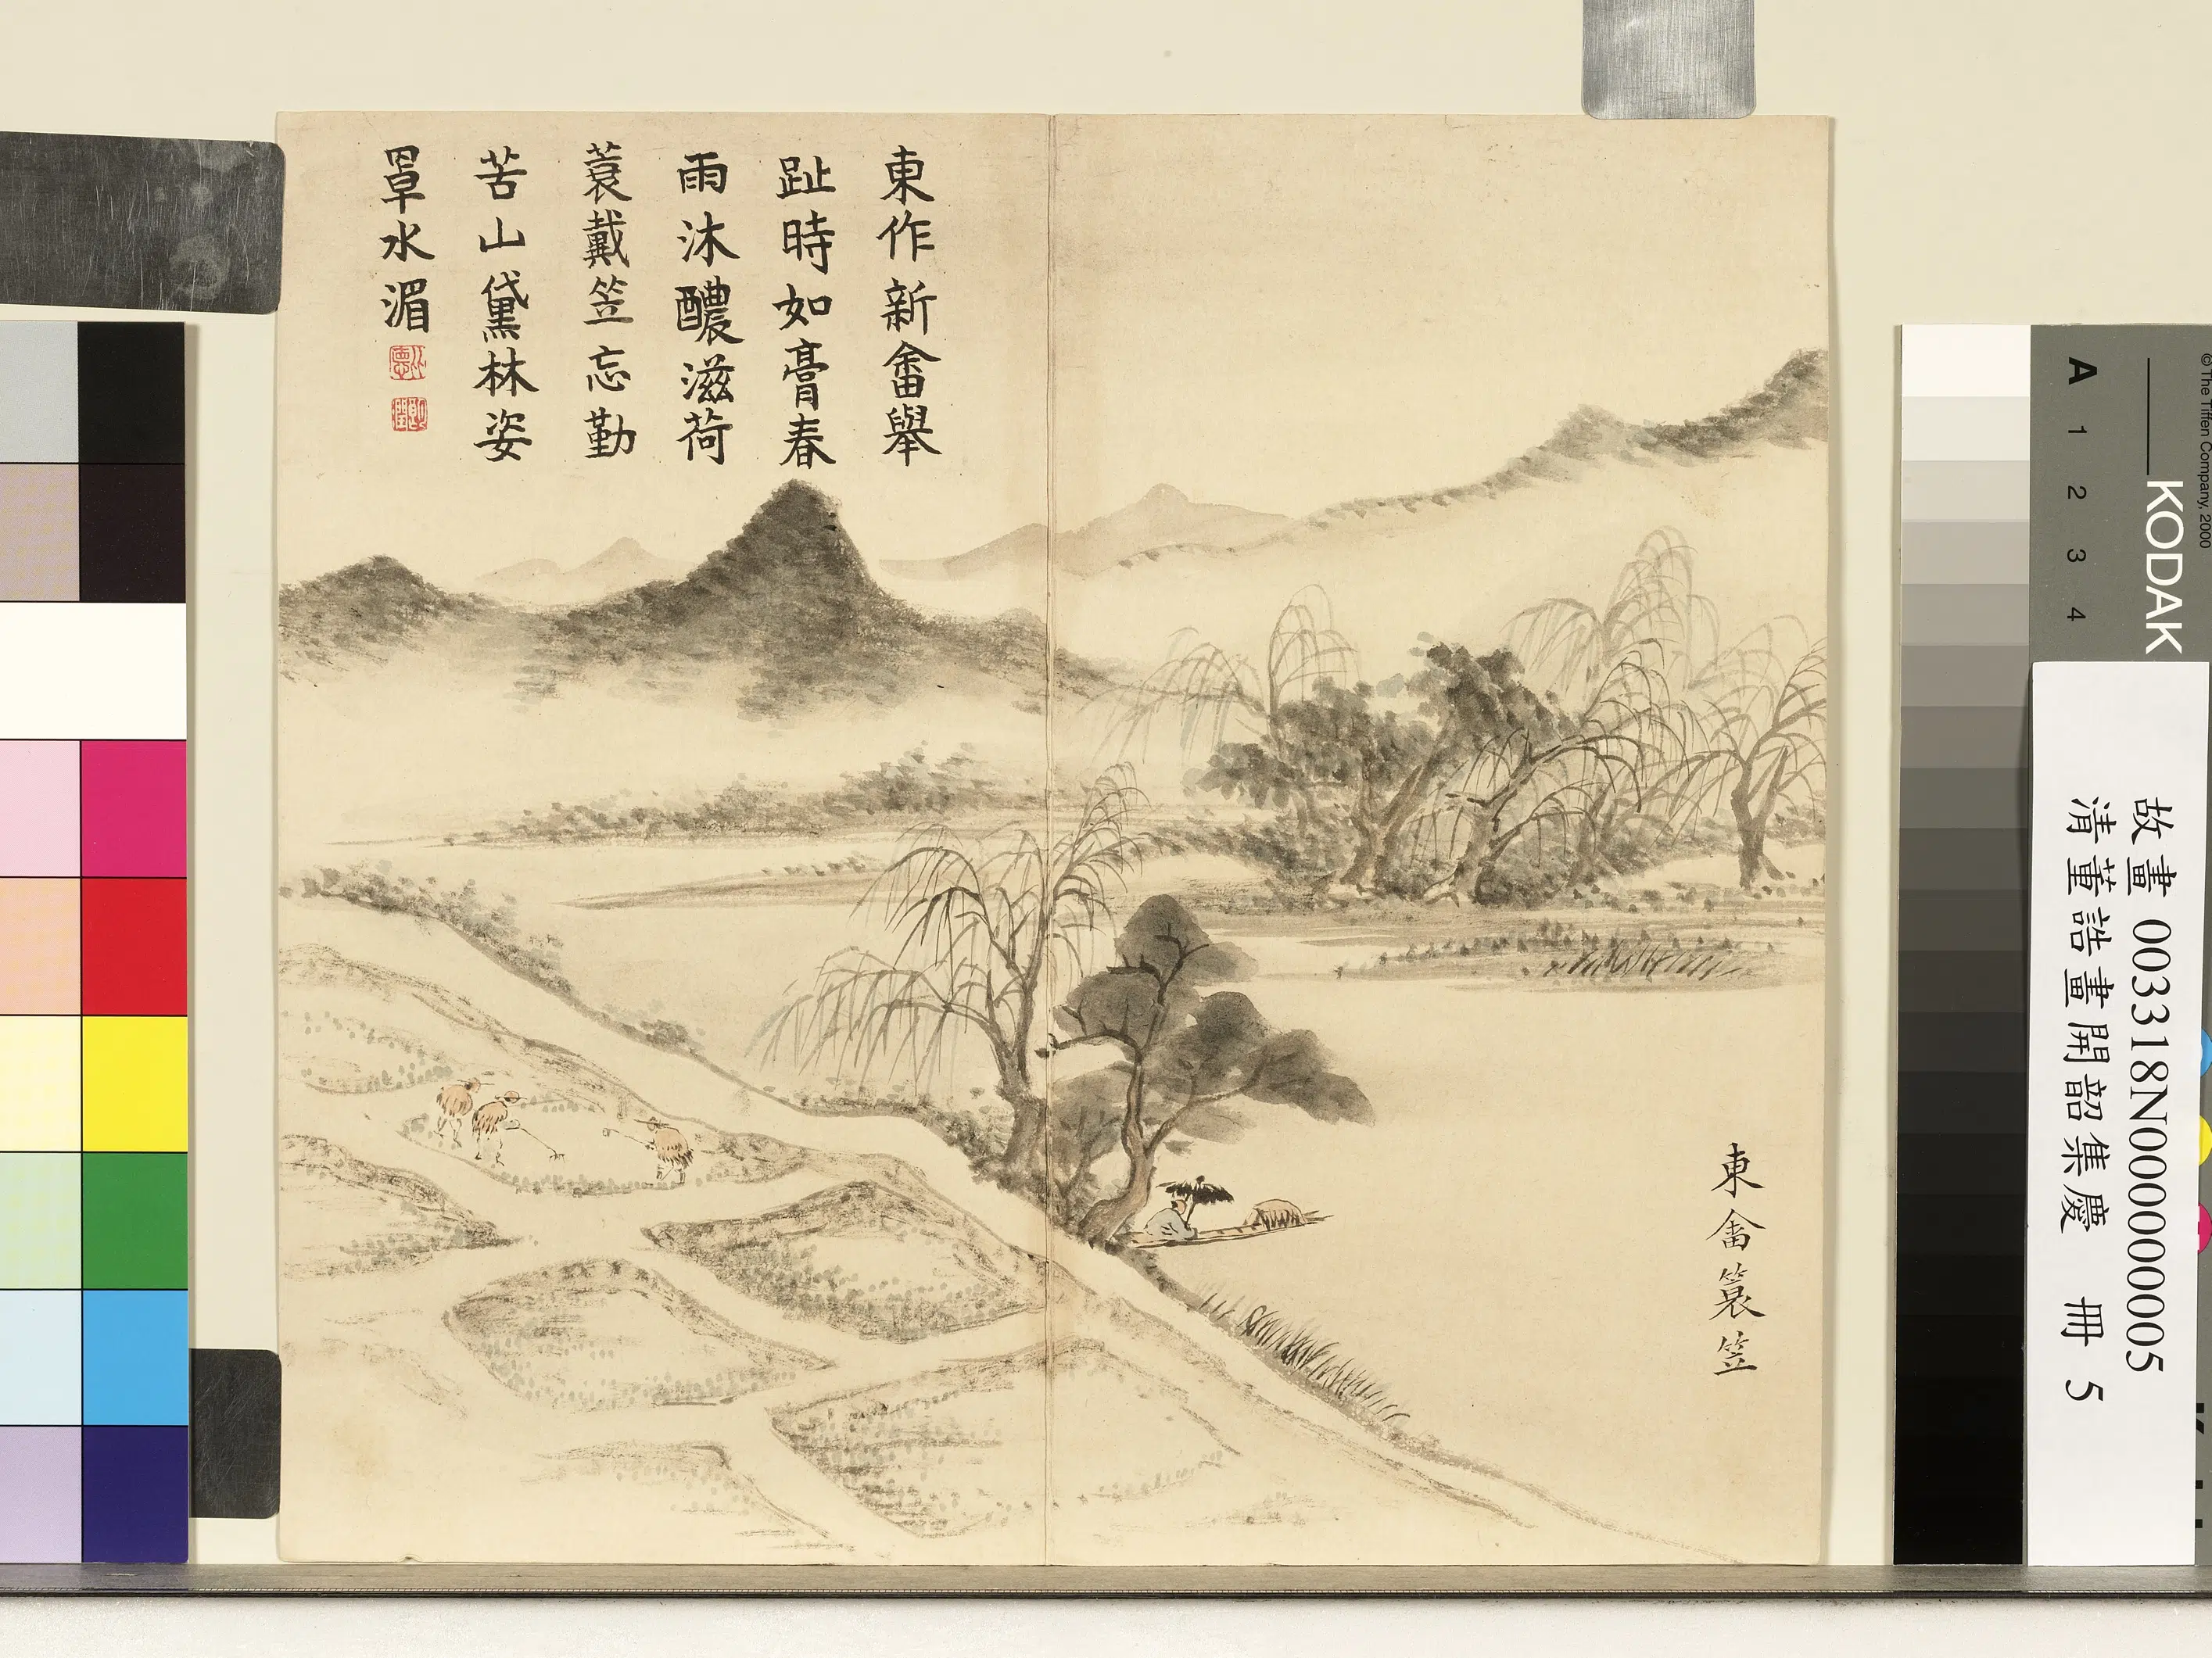 東作新畬舉
趾時如膏春
雨沐醲滋荷
蓑戴笠忘勤
苦山黛林姿
罩水湄
東畬簑笠
故畫 003318N000000005
清董誥畫開韶集慶 冊 5
KODAK
A 1 2 3 4
© The Tiffen Company, 2000